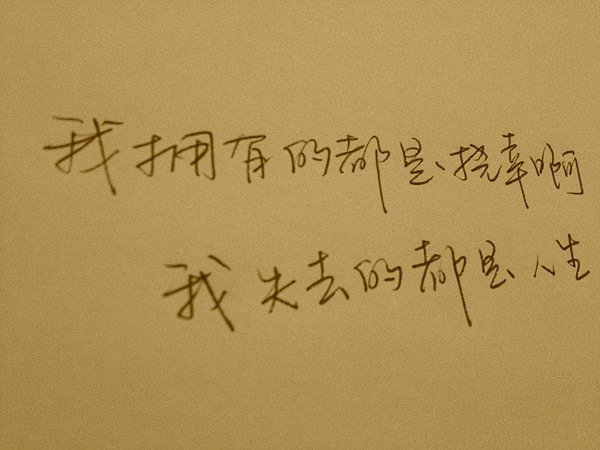 我拥有的都是挠幸啊
我失去的都是人生